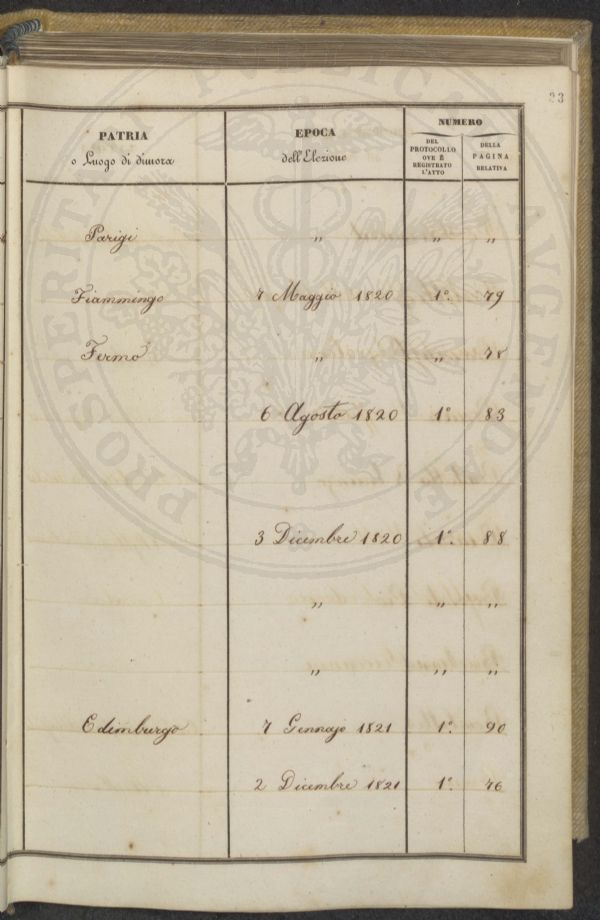 33
PATRIA
o Luogo di dimora
EPOCA
dell'Elezione
NUMERO
DEL
PROTOCOLLO
OVE È
REGISTRATO
L'ATTO
DELLA
PAGINA
RELATIVA
Parigi „ „ „
Fiammingo 7 Maggio 1820 1°. 79
Fermo „ „ 78
6 Agosto 1820 1° 83
3 Dicembre 1820 1°. 88
„ „ „
„ „ „
Edimburgo 7 Gennajo 1821 1°. 90
2 Dicembre 1821 1°. 76
PROSPERITATI PUBLICAE AVGENDAE